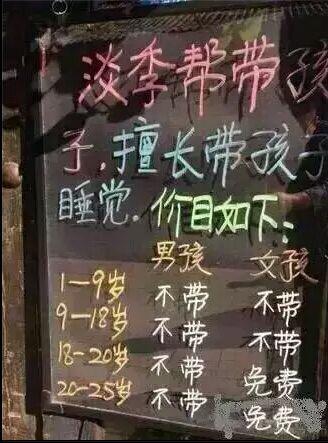 淡季帮带孩
子，擅长带孩子
睡觉．价目如下：
男孩 女孩
1—9岁 不带 不带
9—18岁 不带 不带
18—20岁 不带 免费
20—25岁 不带 免费